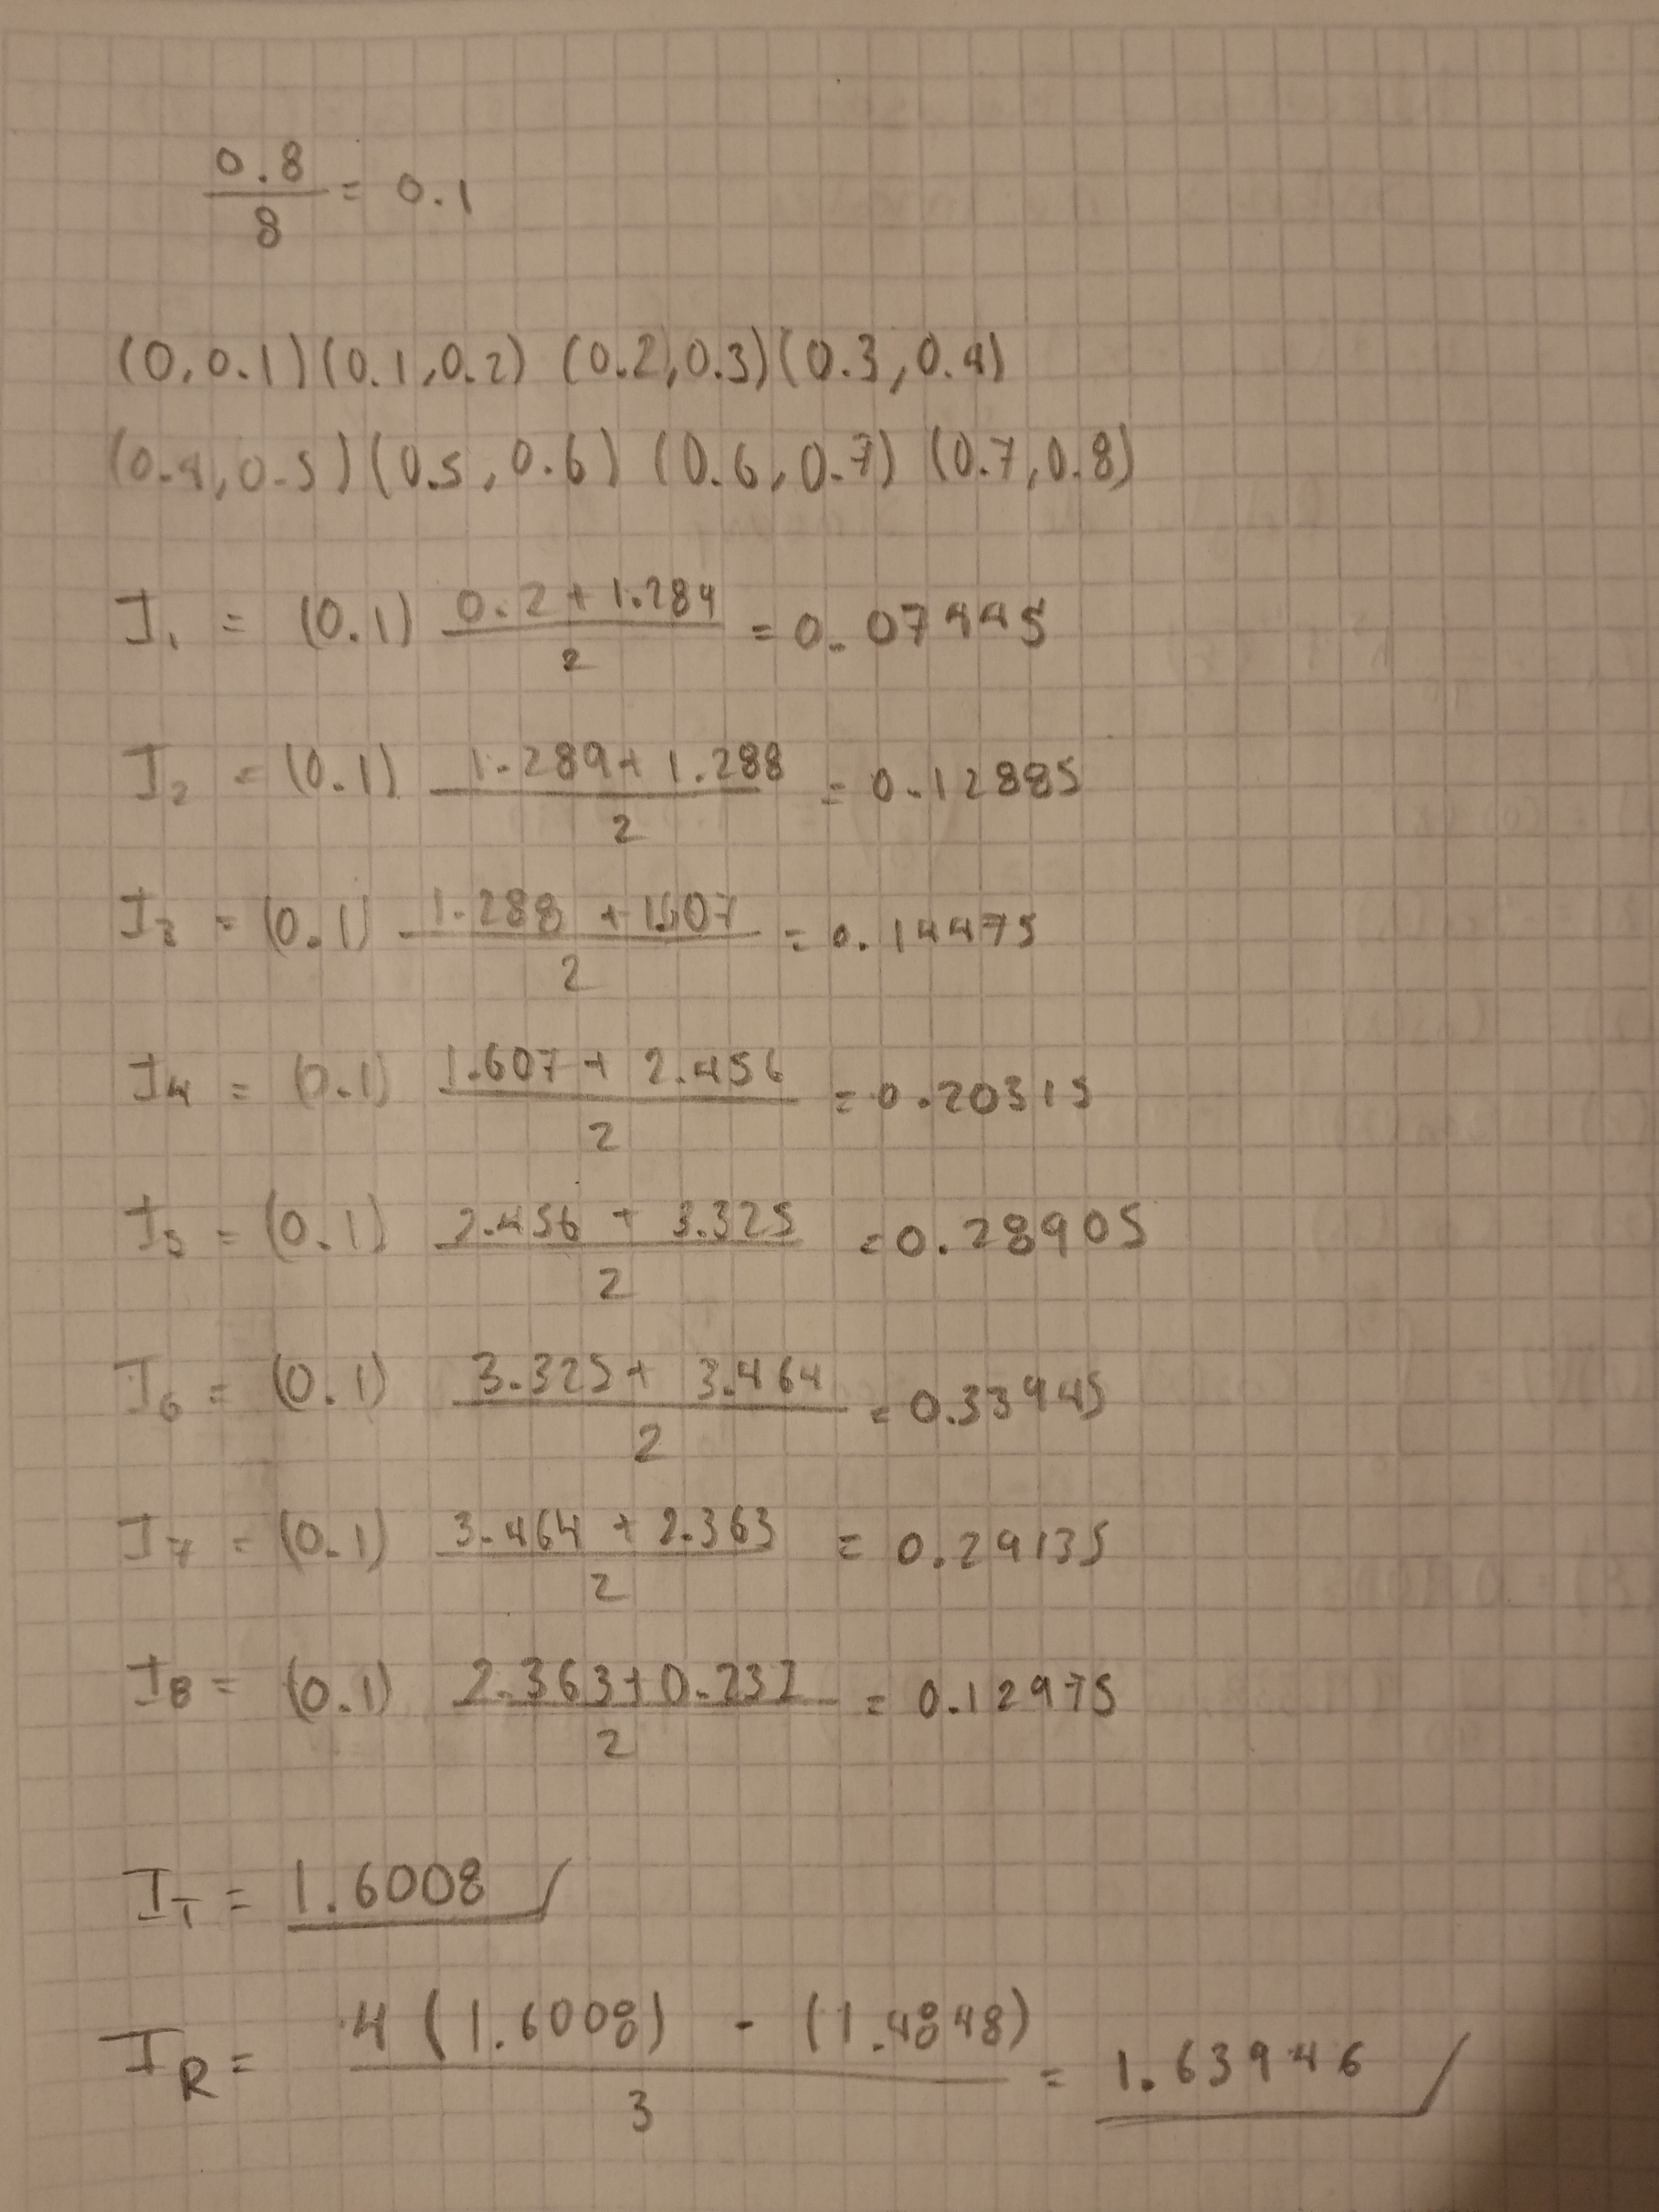 0.8/8 = 0.1
(0,0.1)(0.1,0.2) (0.2,0.3)(0.3,0.4)
(0.4,0.5)(0.5,0.6) (0.6,0.7) (0.7,0.8)
I₁ = (0.1) (0.2+1.289)/2 = 0.07445
I₂ = (0.1) (1.289+1.288)/2 = 0.12885
I₃ = (0.1) (1.288+1.607)/2 = 0.14475
I₄ = (0.1) (1.607+2.456)/2 = 0.20315
I₅ = (0.1) (2.456+3.325)/2 = 0.28905
I₆ = (0.1) (3.325+3.464)/2 = 0.33945
I₇ = (0.1) (3.464+2.363)/2 = 0.29135
I₈ = (0.1) (2.363+0.232)/2 = 0.12975
I_T = 1.6008
I_R = (4(1.6008) - (1.4848))/3 = 1.63946